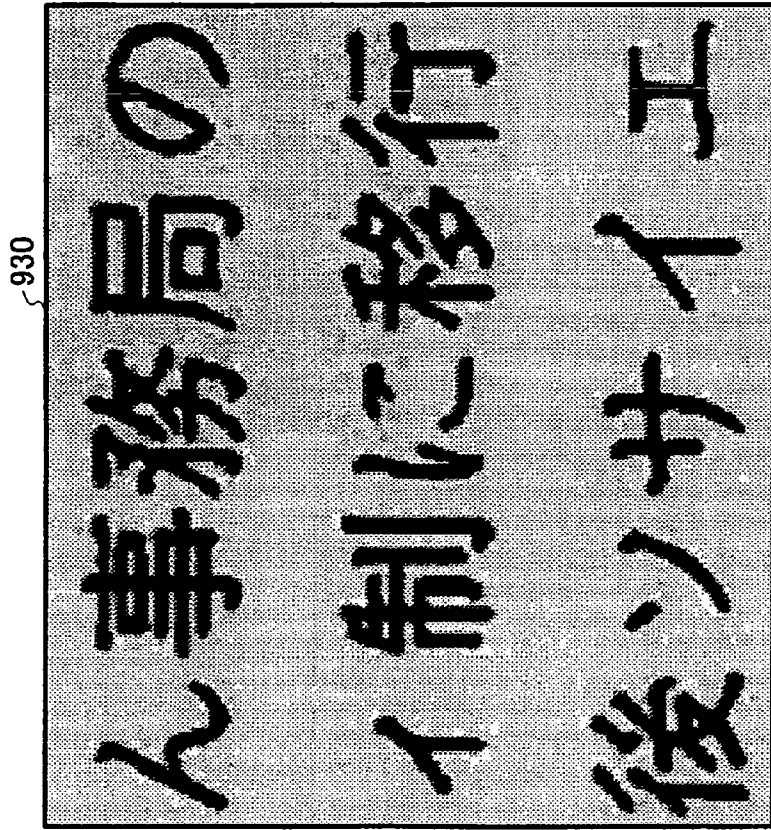 930
ん事務局の
ィ制に移行
後ソサイエ